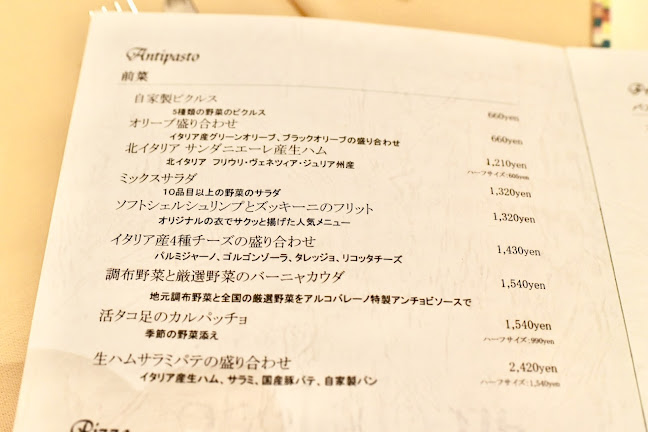 Antipasto
前菜
自家製ピクルス 660yen
5種類の野菜のピクルス
オリーブ盛り合わせ 660yen
イタリア産グリーンオリーブ、ブラックオリーブの盛り合わせ
北イタリア サンダニエーレ産生ハム 1,210yen
北イタリア フリウリ・ヴェネツィア・ジュリア州産 ハーフサイズ:660yen
ミックスサラダ 1,320yen
10品目以上の野菜のサラダ
ソフトシェルシュリンプとズッキーニのフリット 1,320yen
オリジナルの衣でサクッと揚げた人気メニュー
イタリア産4種チーズの盛り合わせ 1,430yen
パルミジャーノ、ゴルゴンゾーラ、タレッジョ、リコッタチーズ
調布野菜と厳選野菜のバーニャカウダ 1,540yen
地元調布野菜と全国の厳選野菜をアルコバレーノ特製アンチョビソースで
活タコ足のカルパッチョ 1,540yen
季節の野菜添え ハーフサイズ:990yen
生ハムサラミパテの盛り合わせ 2,420yen
イタリア産生ハム、サラミ、国産豚パテ、自家製パン ハーフサイズ:1,540yen
Pizza